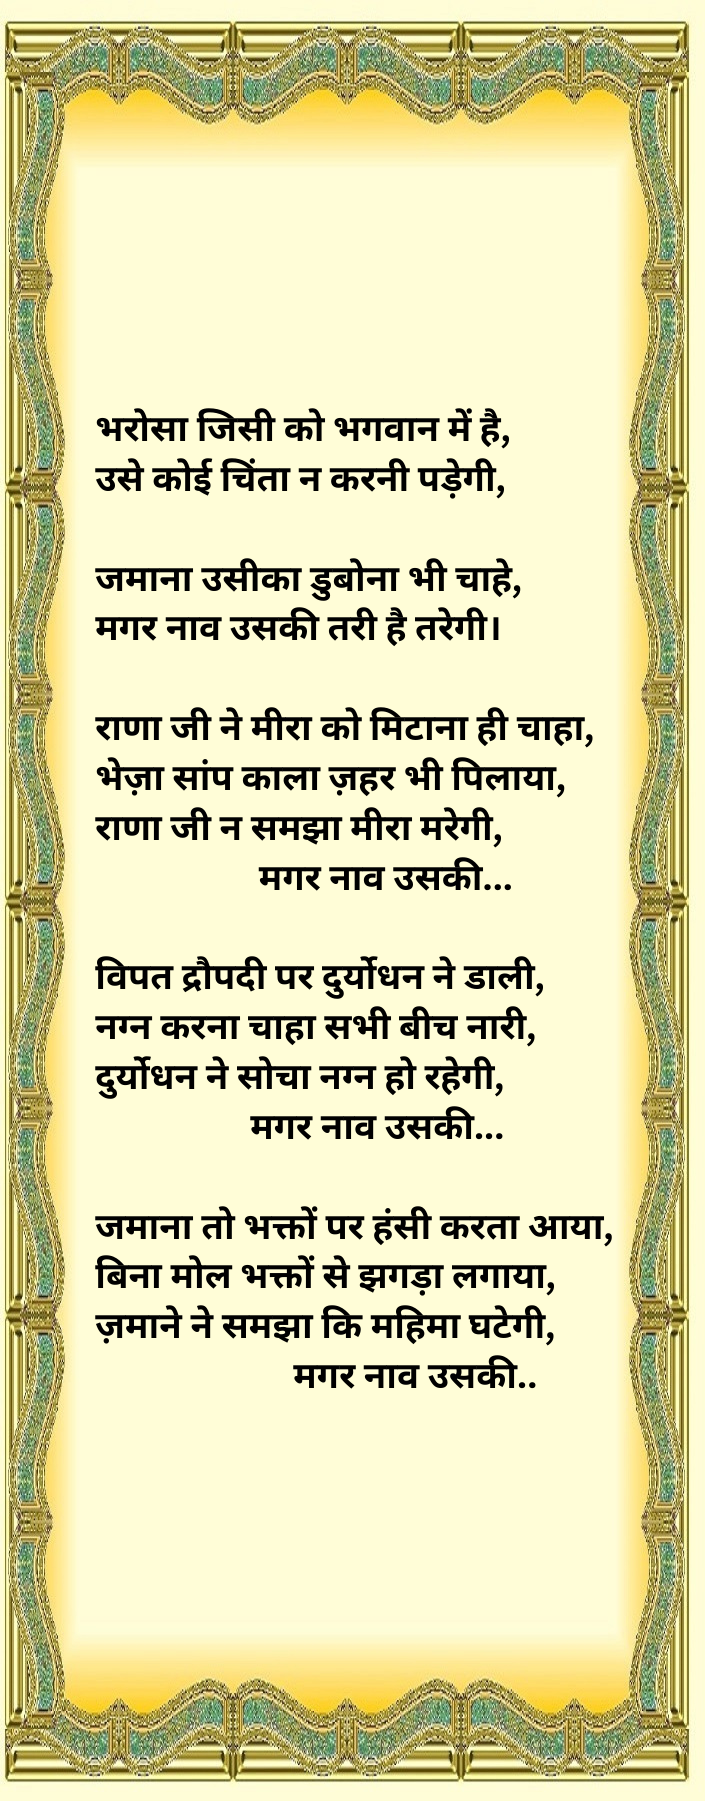 भरोसा जिसी को भगवान में है,
उसे कोई चिंता न करनी पड़ेगी,
जमाना उसीका डुबोना भी चाहे,
मगर नाव उसकी तरी है तरेगी।
राणा जी ने मीरा को मिटाना ही चाहा,
भेज़ा सांप काला ज़हर भी पिलाया,
राणा जी न समझा मीरा मरेगी,
मगर नाव उसकी...
विपत द्रौपदी पर दुर्योधन ने डाली,
नग्न करना चाहा सभी बीच नारी,
दुर्योधन ने सोचा नग्न हो रहेगी,
मगर नाव उसकी...
जमाना तो भक्तों पर हंसी करता आया,
बिना मोल भक्तों से झगड़ा लगाया,
ज़माने ने समझा कि महिमा घटेगी,
मगर नाव उसकी..